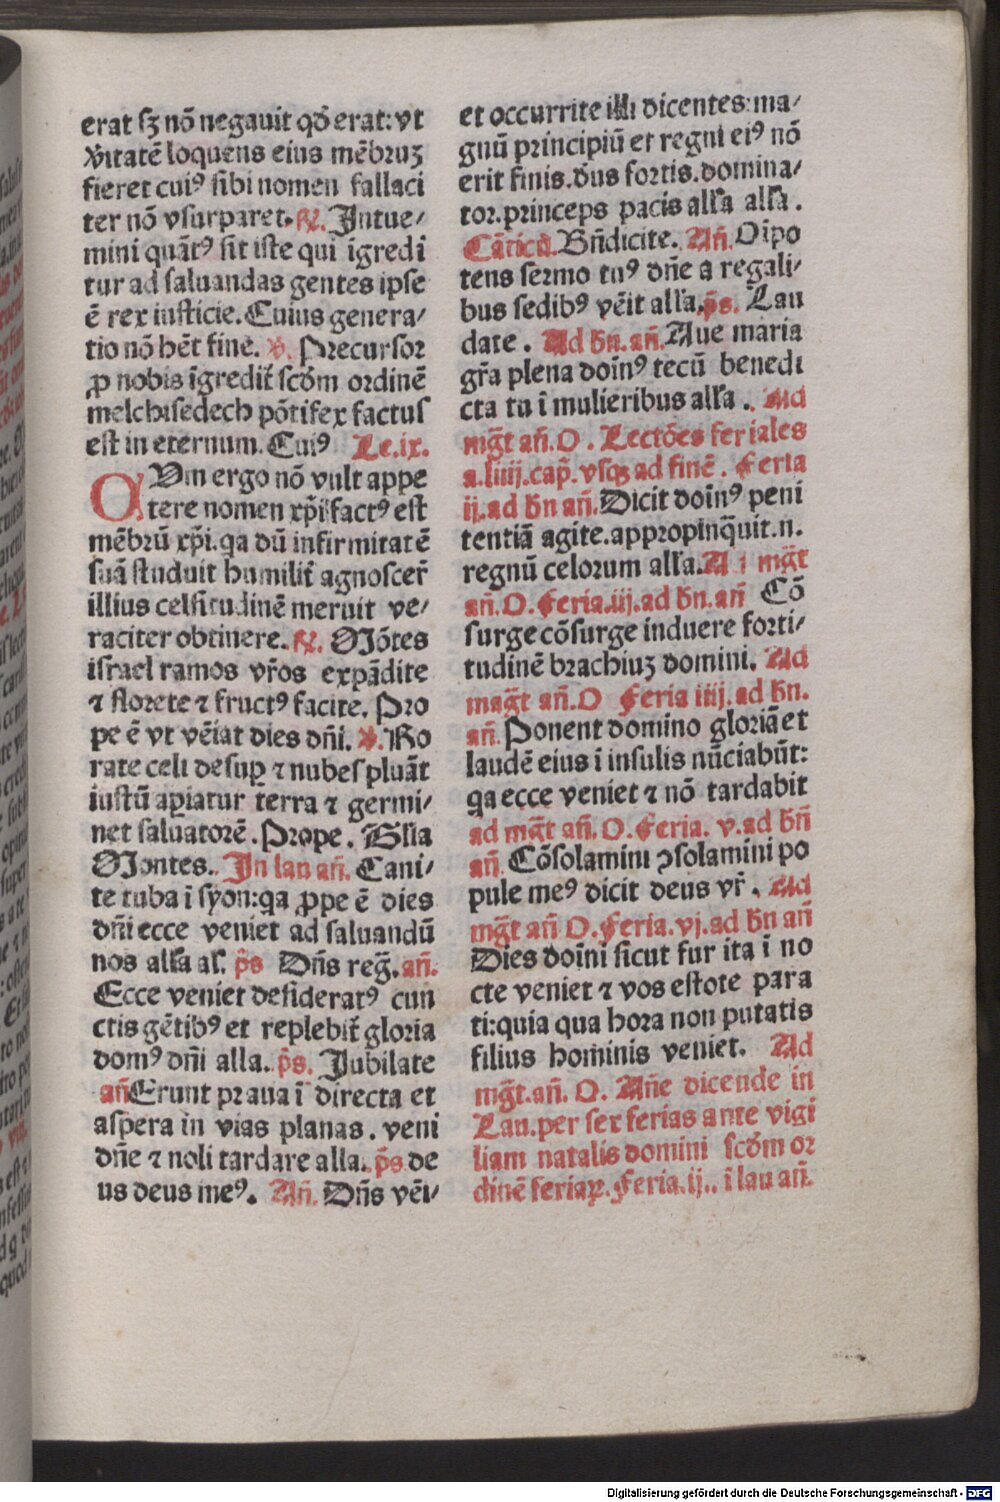 erat sꝫ nō negauit qđ erat: vt
v̾itatē loquens eius mēbruꝫ
fieret cuiꝰ sibi nomen fallaci
ter nō vsurparet. ℟. Intue/
mini quātꝰ sit iste qui īgredi
tur ad saluandas gentes ipse
ē rex iusticie. Cuius genera/
tio nō hēt finē. ℣. Precursor
ꝓ nobis īgredit̄ scđm ordinē
melchisedech pōtifex factus
est in eternum. Cuiꝰ Le.ix.
QVm ergo nō vult appe
tere nomen xp̄i factꝰ est
mēbrū xp̄i. qa dū infirmitatē
suā studuit humilit̄ agnoscer̄
illius celsitudinē meruit ve/
raciter obtinere. ℟. Mōtes
israel ramos vr̄os expādite
⁊ florete ⁊ fructꝰ facite. Pro
pe ē vt vēiat dies dn̄i. ℣. Ro
rate celi desuꝑ ⁊ nubes pluāt
iustū aꝑiatur terra ⁊ germi/
net saluatorē. Prope. Gl̄ia
Montes. In lau an̄. Cani/
te tuba ī syon: qa ꝓpe ē dies
dn̄i ecce veniet ad saluandū
nos all̄a al̄. p̄s Dn̄s reḡ. an̄.
Ecce veniet desideratꝰ cun
ctis gētibꝰ et replebit̄ gloria
domꝰ dn̄i alla. p̄s. Jubilate
an̄ Erunt praua ī directa et
aspera in vias planas. veni
dn̄e ⁊ noli tardare alla. p̄s. de
us deus meꝰ. An̄. Dn̄s vēi/
et occurrite illi dicentes: ma/
gnū principiū et regni eiꝰ nō
erit finis. dūs fortis. domina/
tor. princeps pacis all̄a all̄a.
Cāticū. Bn̄dicite. An̄. Oīpo
tens sermo tuꝰ dn̄e a regali/
bus sedibꝰ vēit all̄a. p̄s. Lau
date. Ad bn̄. an̄. Aue maria
gr̄a plena doīnꝰ tecū benedi
cta tu ī mulieribus all̄a. Ad
mḡt an̄. O. Lectōes feriales
a. liiij. cap̄. vsqꝫ ad finē. Feria
ij. ad bn̄ an̄. Dicit doīnꝰ peni
tentiā agite. appropinq̄uit. n.
regnū celorum all̄a. A i mḡt
an̄. O. Feria. iij. ad bn̄. an̄ Cō
surge cōsurge induere forti/
tudinē brachiuꝫ domini. Ad
maḡt an̄. O Feria iiij. ad bn̄.
an̄. Ponent domino gloriā et
laudē eius ī insulis nūciabūt:
qa ecce veniet ⁊ nō tardabit
ad mḡt an̄. O. Feria. v. ad bn̄
an̄. Cōsolamini ꝯsolamini po
pule meꝰ dicit deus vr̄. Ad
mḡt an̄ O. Feria. vj. ad bn̄ an̄
Dies doīni sicut fur ita ī no
cte veniet ⁊ vos estote para
ti: quia qua hora non putatis
filius hominis veniet. Ad
mḡt. an̄. O. An̄e dicende in
Lau. per sex ferias ante vigi
liam natalis domini scđm or
dinē feriaꝝ. Feria. ij.. ī lau an̄.
Digitalisierung gefördert durch die Deutsche Forschungsgemeinschaft - DFG